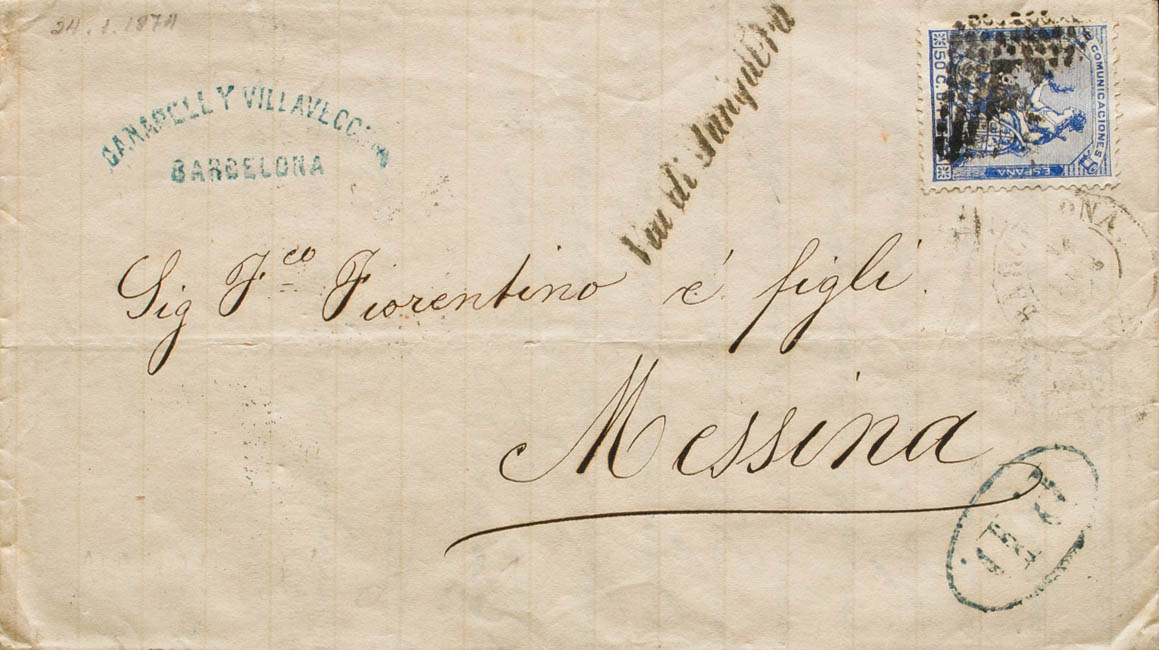 24.1.1874
CANADELL Y VILLAVECCHIA
BARCELONA
Via di
50 C.
COMUNICACIONES
ESPAÑA
Sig F.co Fiorentino é figli.
Messina